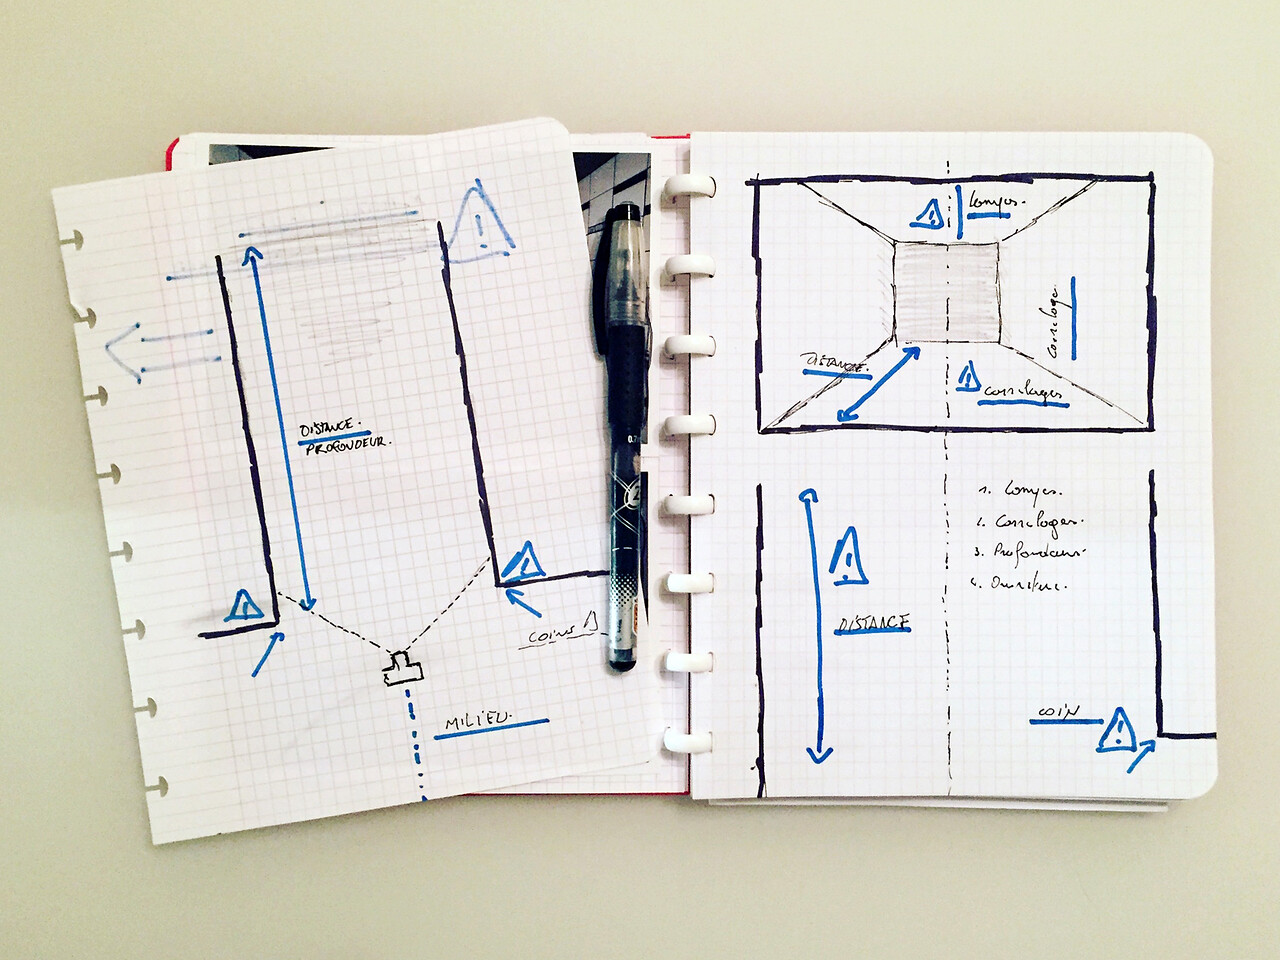 DISTANCE.
PROFONDEUR.
COINS
MILIEU.
0.7
Lampes.
Carrelage.
DISTANCE.
Carrelages
1. Lampes.
2. Carrelages.
3. Profondeurs.
4.
DISTANCE
COIN